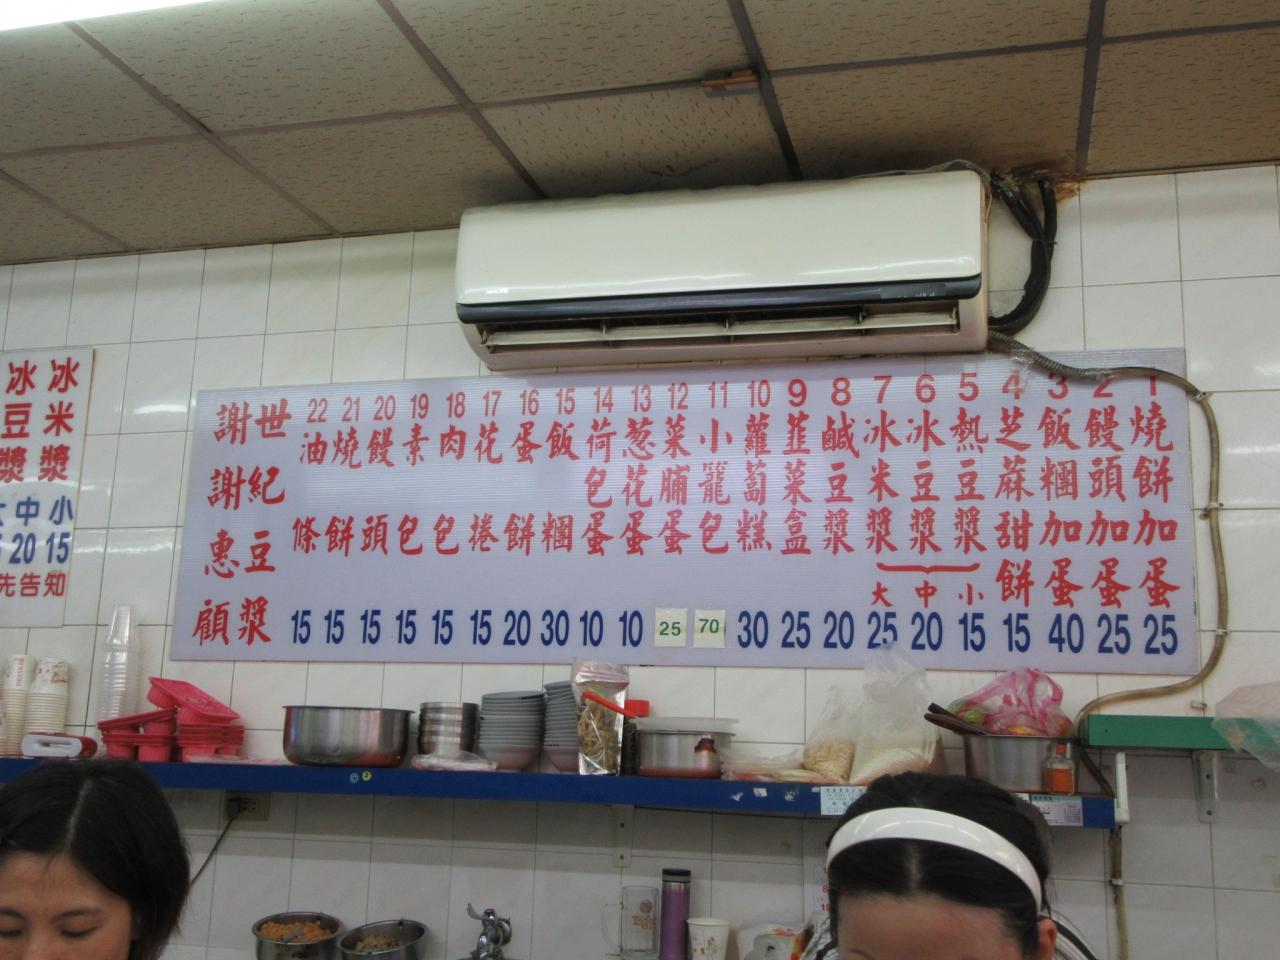 1 燒餅加蛋 25
2 饅頭加蛋 25
3 飯糰加蛋 40
4 芝麻甜餅 15
5 熱豆漿 小 15
6 冰豆漿 中 20
7 冰米漿 大 25
8 鹹豆漿 20
9 韮菜盒 25
10 蘿蔔糕 30
11 小籠包 70
12 菜脯蛋 25
13 葱花蛋 10
14 荷包蛋 10
15 飯糰 30
16 蛋餅 20
17 花捲 15
18 肉包 15
19 素包 15
20 饅頭 15
21 燒餅 15
22 油條 15
世紀豆漿
謝謝惠顧
冰米漿
冰豆漿
中 小
20 15
先告知